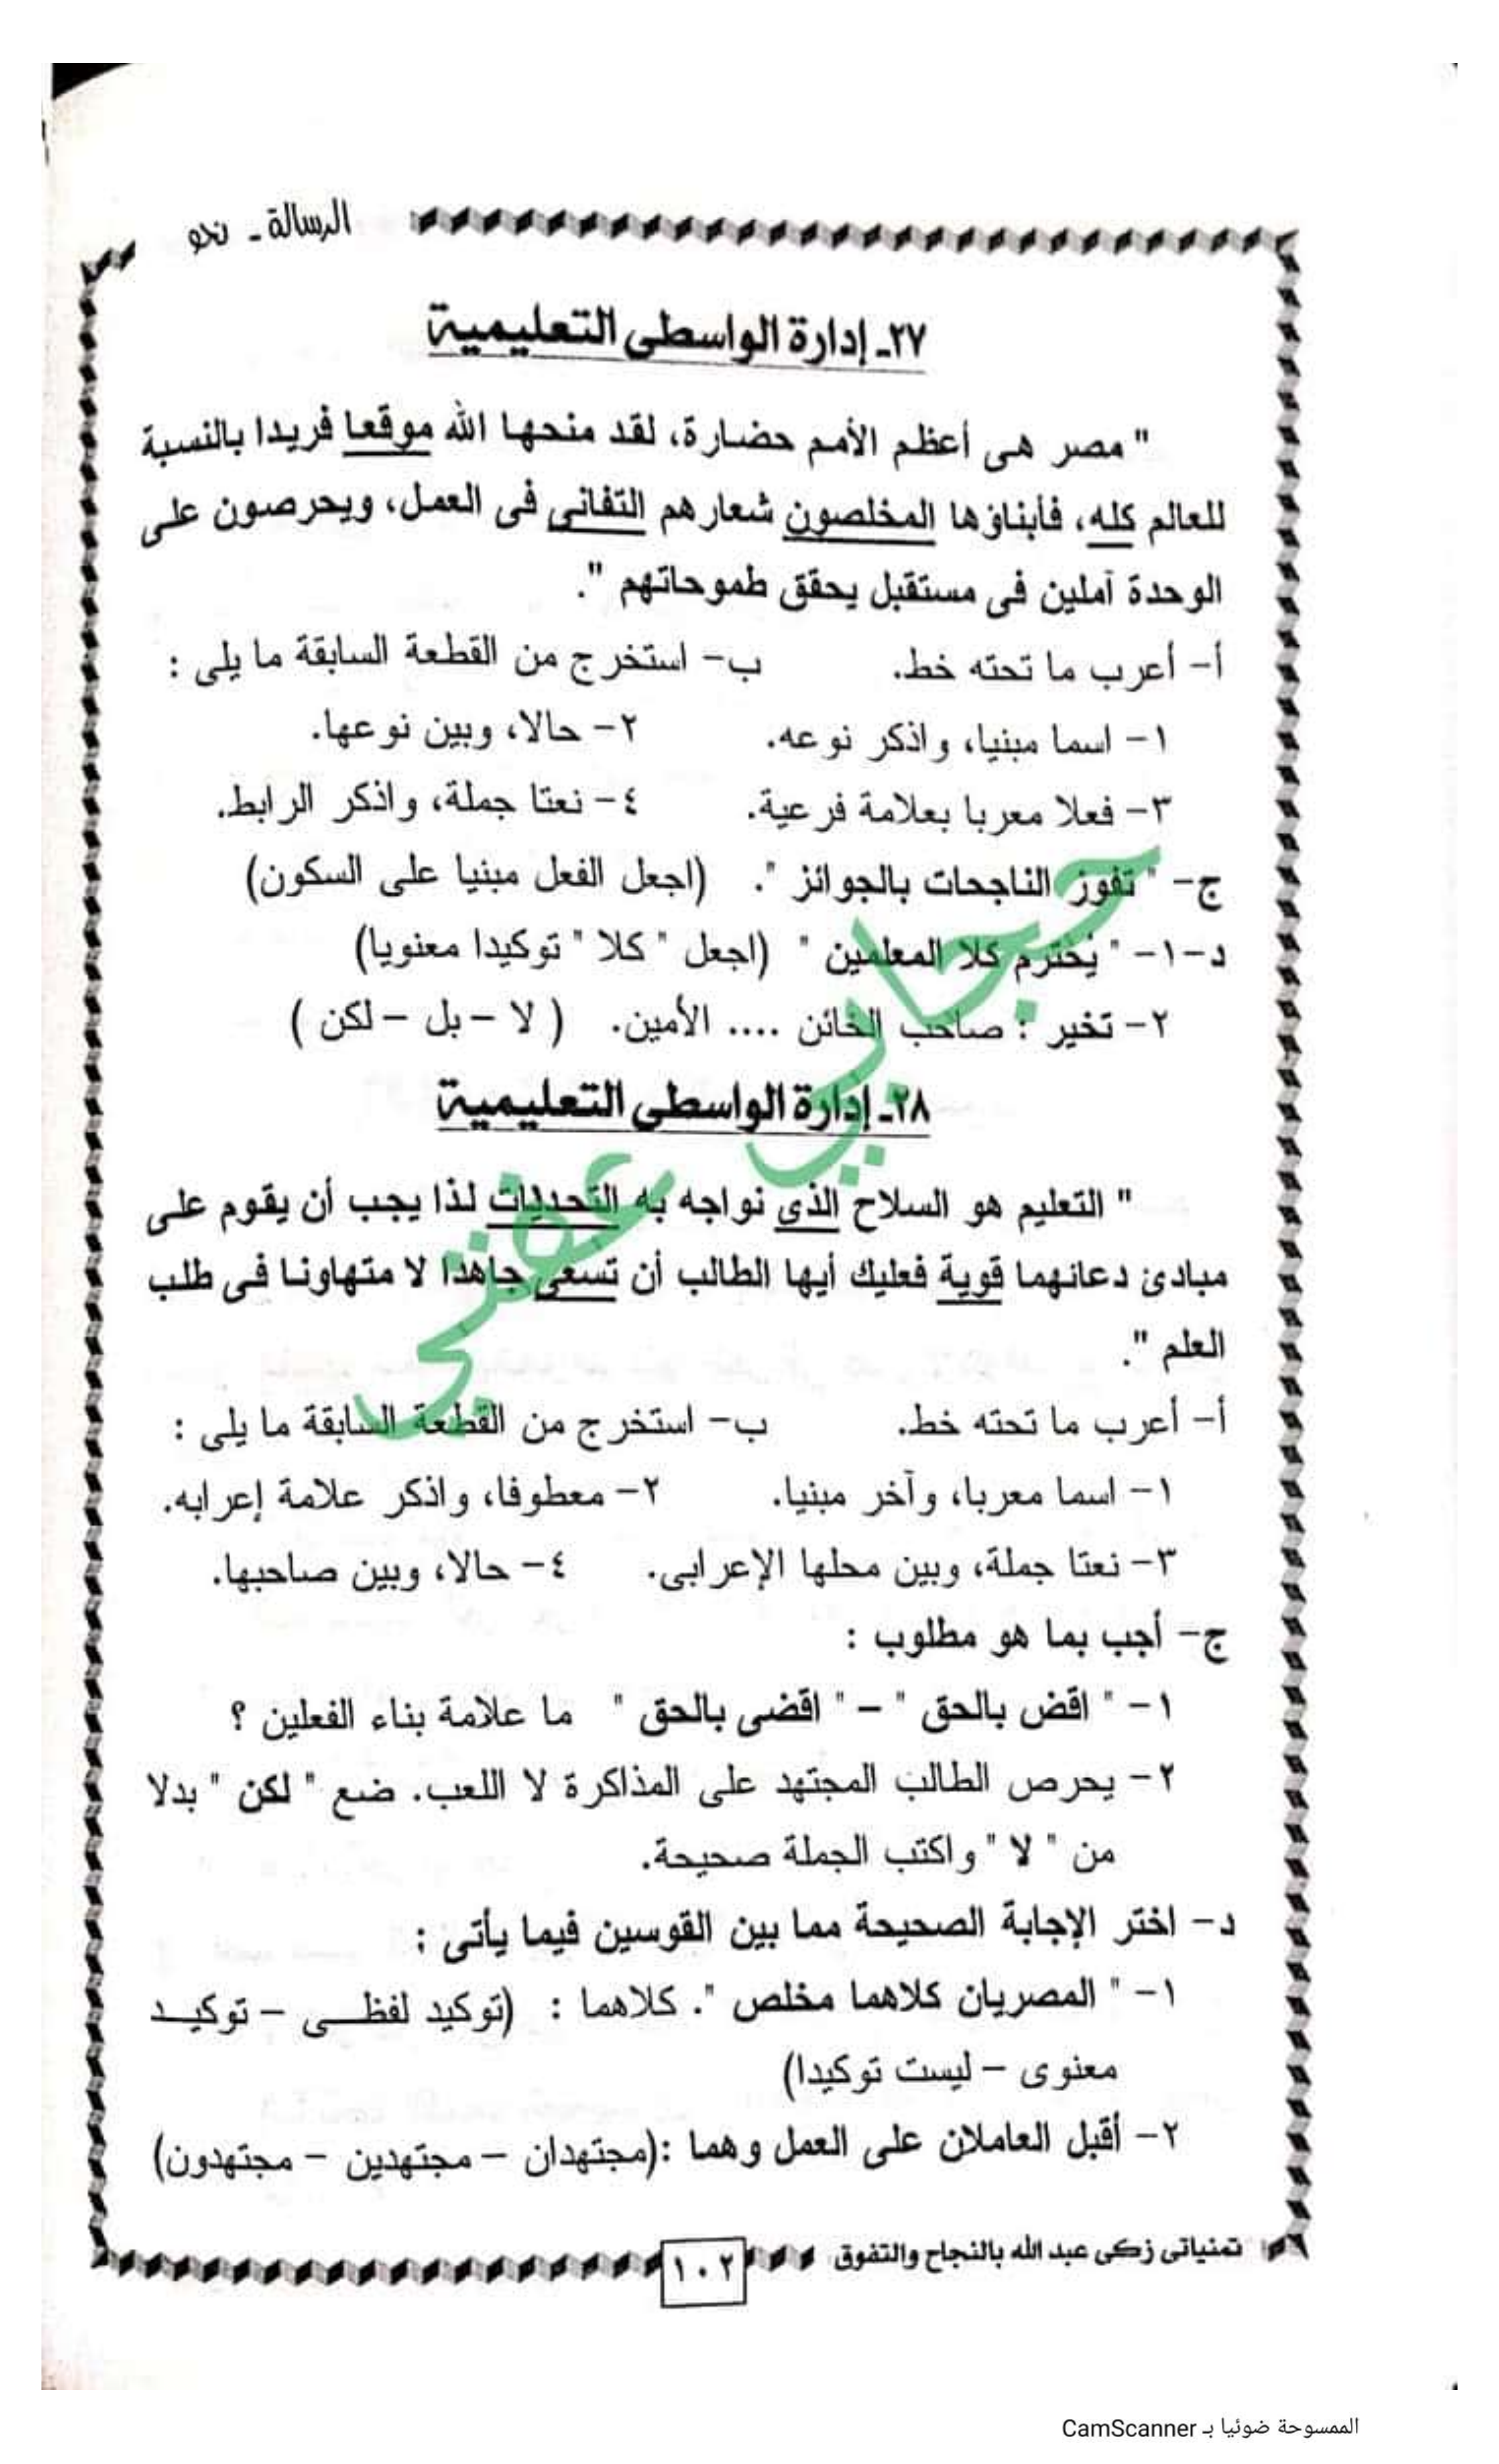 الرسالة ـ نحو
٢٧ـ إدارة الواسطى التعليمية
" مصر هى أعظم الأمم حضارة، لقد منحها الله موقعا فريدا بالنسبة
للعالم كله، فأبناؤها المخلصون شعارهم التفانى فى العمل، ويحرصون على
الوحدة آملين فى مستقبل يحقق طموحاتهم ".
أ- أعرب ما تحته خط. ب- استخرج من القطعة السابقة ما يلى :
١- اسما مبنيا، واذكر نوعه. ٢- حالا، وبين نوعها.
٣- فعلا معربا بعلامة فرعية. ٤- نعتا جملة، واذكر الرابط.
ج- " تفوز الناجحات بالجوائز ". (اجعل الفعل مبنيا على السكون)
د-١- " يُحْترم كلا المعلمين " (اجعل " كلا " توكيدا معنويا)
٢- تخير : صاحب الخائن .... الأمين. ( لا - بل - لكن )
٢٨ـ إدارة الواسطى التعليمية
" التعليم هو السلاح الذى نواجه به التحديات لذا يجب أن يقوم على
مبادئ دعانهما قوية فعليك أيها الطالب أن تسعى جاهدا لا متهاونا فى طلب
العلم ".
أ- أعرب ما تحته خط. ب- استخرج من القطعة السابقة ما يلى :
١- اسما معربا، وآخر مبنيا. ٢- معطوفا، واذكر علامة إعرابه.
٣- نعتا جملة، وبين محلها الإعرابى. ٤- حالا، وبين صاحبها.
ج- أجب بما هو مطلوب :
١- " اقض بالحق " - " اقضى بالحق " ما علامة بناء الفعلين ؟
٢- يحرص الطالب المجتهد على المذاكرة لا اللعب. ضع " لكن " بدلا
من " لا " واكتب الجملة صحيحة.
د- اختر الإجابة الصحيحة مما بين القوسين فيما يأتى :
١- " المصريان كلاهما مخلص ". كلاهما : (توكيد لفظــى - توكيــد
معنوى - ليست توكيدا)
٢- أقبل العاملان على العمل وهما :(مجتهدان - مجتهدين - مجتهدون)
تمنياتى زكى عبد الله بالنجاح والتفوق
١٠٢
الممسوحة ضوئيا بـ CamScanner